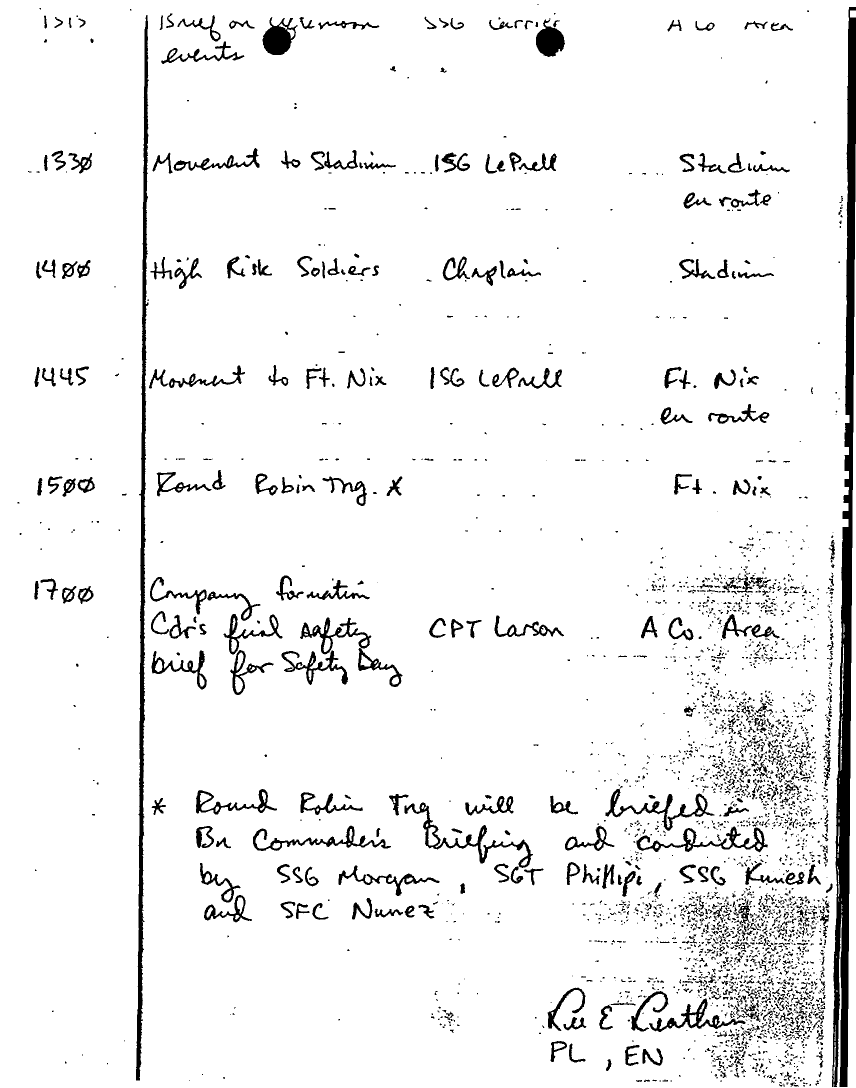 Brief on afternoon SSG Carrier A Co Area
events
1330 Movement to Stadium 1SG LePrell Stadium
en route
1400 High Risk Soldiers Chaplain Stadium
1445 Movement to Ft. Nix 1SG LePrell Ft. Nix
en route
1500 Round Robin Tng. * Ft. Nix
1700 Company formation
Cdr's final safety CPT Larson A Co. Area
brief for Safety Day
* Round Robin Tng will be briefed in
Bn Commader's Briefing and conducted
by SSG Morgan, SGT Phillipi, SSG Kunesh,
and SFC Nunez
E
PL, EN